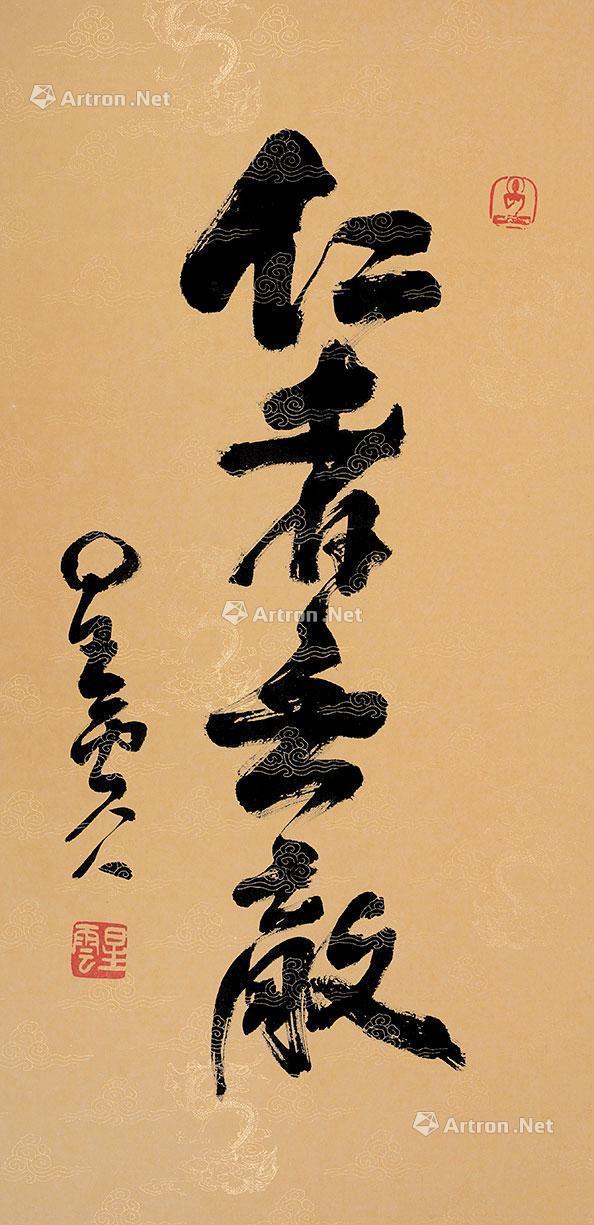 Artron.Net
仁者無敵
星雲
星雲
Artron.Net
Artron.Net